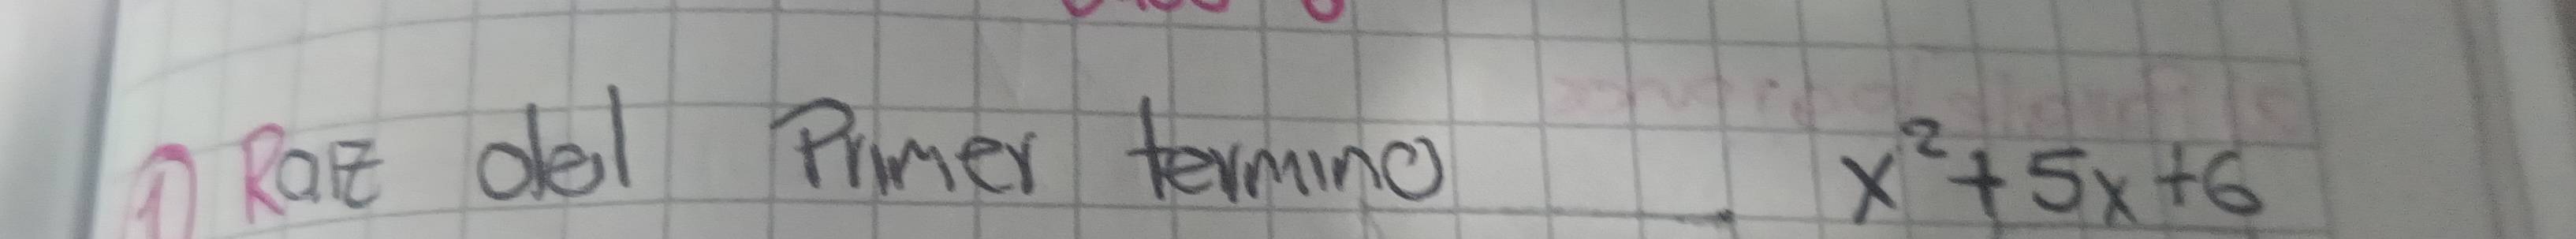 1) Raíz del Primer termino x²+5x+6